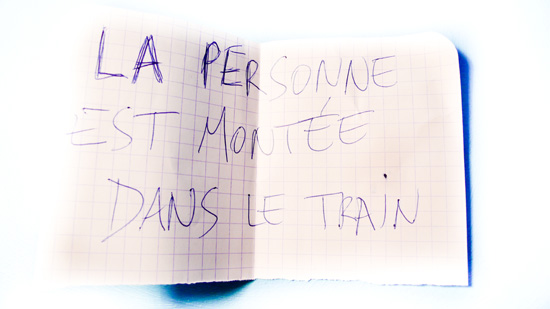 LA PERSONNE
EST MONTÉE
DANS LE TRAIN